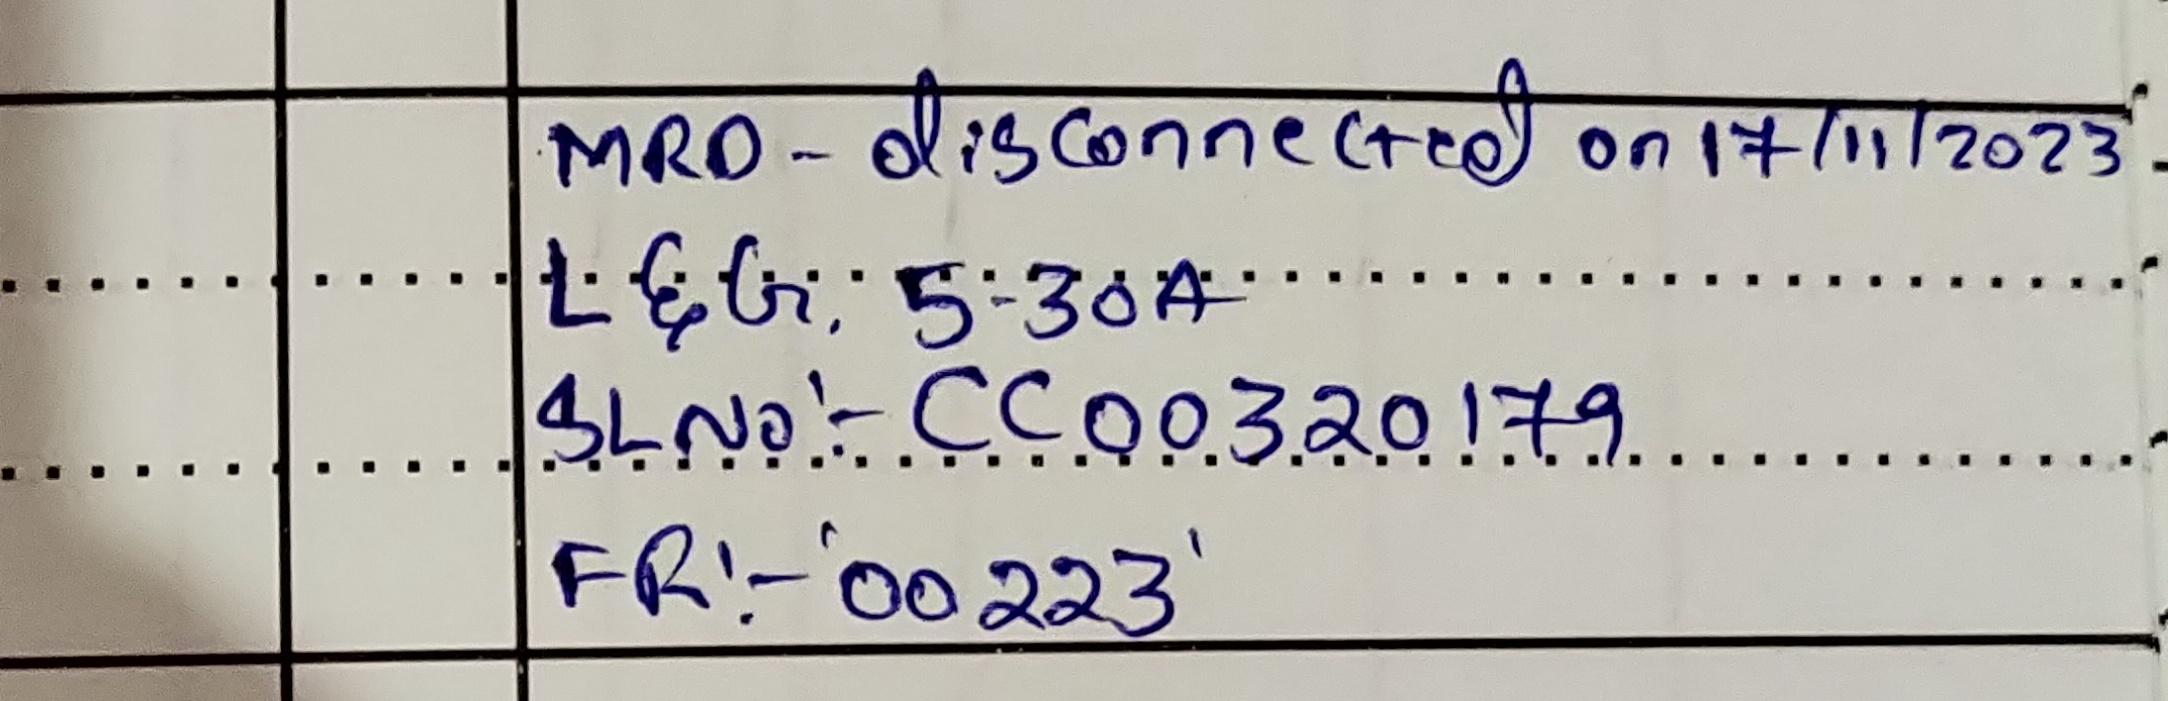 MRD - disconnected on 17/11/2023
L & G. 5-30A
SL NO:- CC00320179
FR:- '00223'